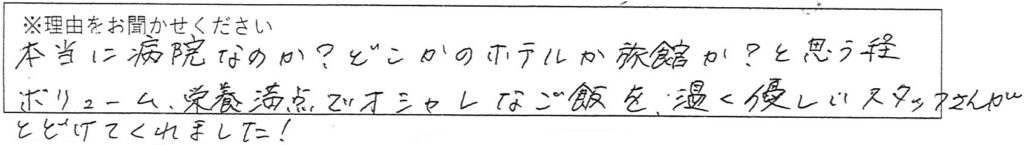 ※理由をお聞かせください
本当に病院なのか?どこかのホテルか旅館か?と思う程
ボリューム、栄養満点でオシャレなご飯を、温く優しいスタッフさんが
とどけてくれました!